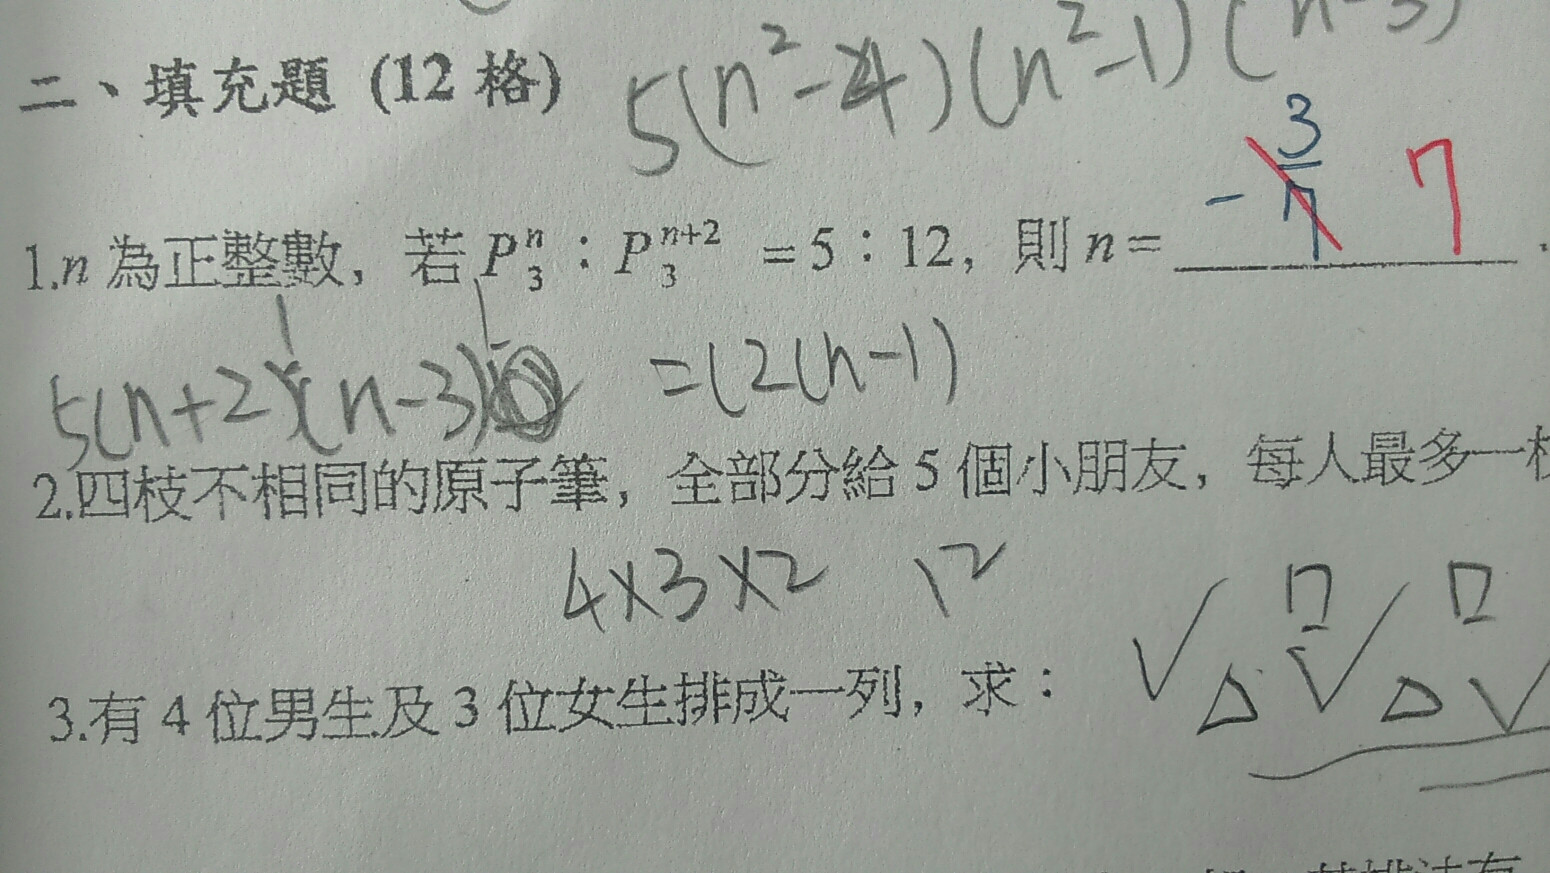 二、填充題 (12 格)
5(n²-4)(n²-1)(n-3)
1.n 為正整數，若 P₃ⁿ：P₃ⁿ⁺² =5：12，則 n= -3/7 7 .
5(n+2)(n-3) =12(n-1)
2.四枝不相同的原子筆，全部分給 5 個小朋友，每人最多一枝
4×3×2 12
3.有 4 位男生及 3 位女生排成一列，求：